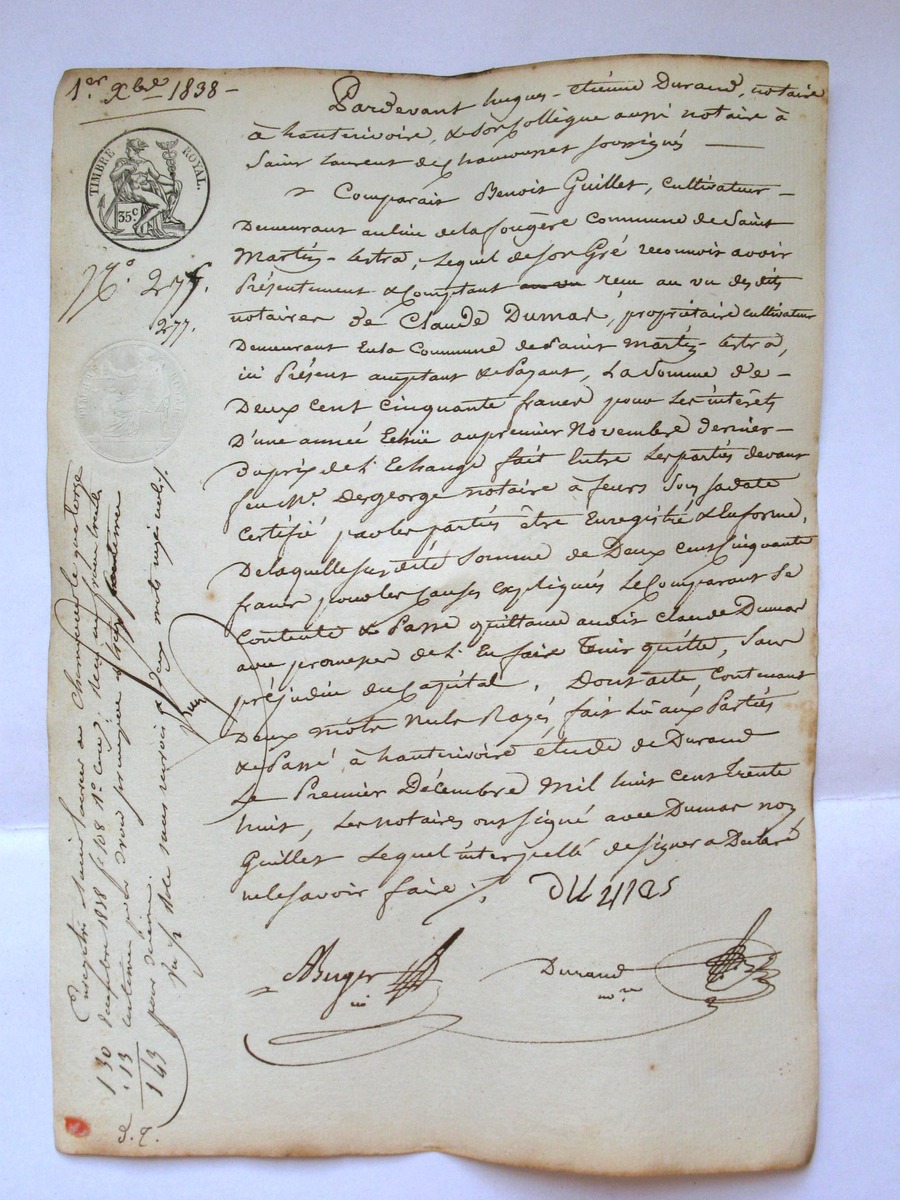 1er Xbre 1838 -
TIMBRE ROYAL.
35c
No. 275.
277.
Pardevant hugues-étiénne Durand, notaire
à hauterivoire, & son Collègue aussi notaire à
Saint Laurent de Chamousset soussignés
Comparait Benoit Guillet, cultivateur
Demeurant au lieu de la fougère Commune de Saint
Martin-lestra, lequel de son Gré reconnoit avoir
Présentement & Comptant au vu reçu au vu des dits
notaires de Claude Dumas, propriétaire cultivateur
Demeurant En la Commune de Saint Martin-lestra,
ici Présent acceptant & Payant, La Somme de
Deux cent cinquante francs pour Les intérêts
D'une année Echüe au premier Novembre dernier
Du prix de l'Echange fait Entre Les parties devant
feu Me. Dergeorge notaire à feurs Sous sa date
Certifié par les parties être Enregistré & En forme,
De laquelle susdite Somme de Deux cent cinquante
francs pour les causes expliquées Le Comparant Se
Contente & Passe quittance audit Claude Dumas
avec promesse de l'En faire Tenir quitte, Sans
préjudice du Capital. Dont acte, Contenant
Deux mots Nuls Rayés, fait Lu aux Parties
& Passé à hauterivoire étude de Durand
Le Premier Décembre Mil huit cent trente
huit, Les notaires ont Signé avec Dumas non
Guillet Lequel interpellé de signer a Déclaré
ne le savoir faire.
DUMAS
Durand
nore
Enregistré à Saint Laurent de Chamousset le quatorze
décembre 1838 fo 108 Ro Cas
centimes pour droit principal et treize centimes
pour dixième.
130
13
143